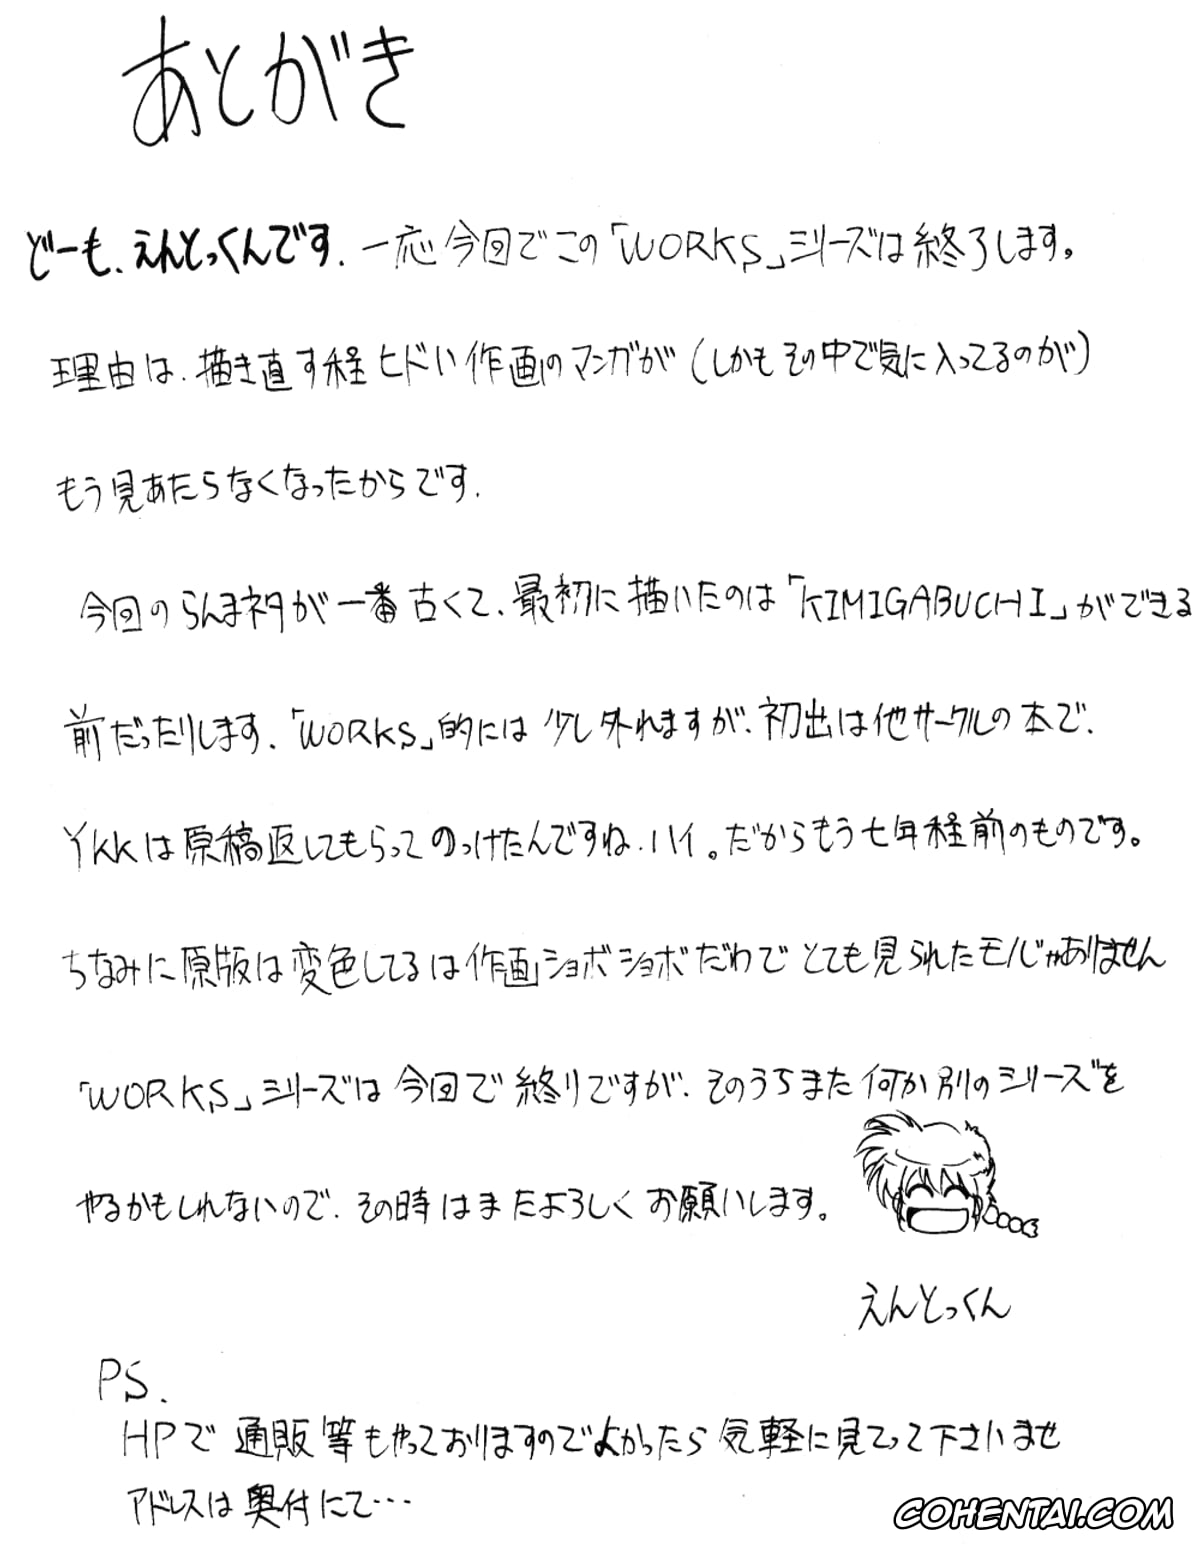 あとがき
どーも、えんとっくんです. 一応今回でこの「WORKS」シリーズは終了します。
理由は、描き直す程ヒドい作画のマンガが(しかもその中で気に入ってるのが)
もう見あたらなくなったからです.
今回のらんまネタが一番古くて、最初に描いたのは「KIMIGABUCHI」ができる
前だったりします、「WORKS」的には少し外れますが、初出は他サークルの本で、
YKKは原稿返してもらってのっけたんですね、ハイ。だからもう七年程前のものです。
ちなみに原版は変色してるは作画ショボショボだわでとても見られたモノじゃありません
「WORKS」シリーズは今回で終りですが、そのうちまた何か別のシリーズを
やるかもしれないので、その時はまたよろしくお願いします。
えんとっくん
PS.
HPで通販等もやっておりますのでよかったら気軽に見てって下さいませ
アドレスは奥付にて…
COHENTAI.COM